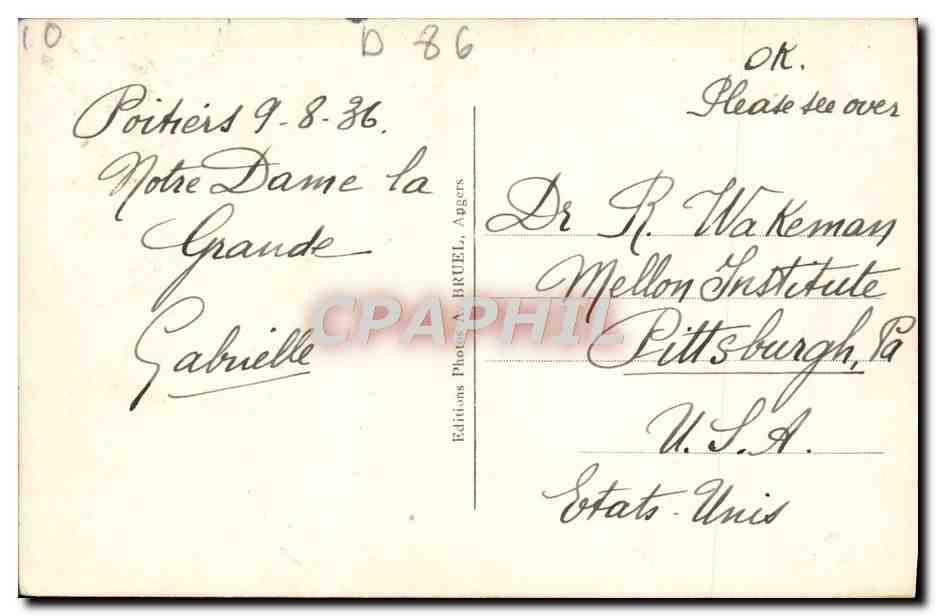 10
D 86
Poitiers 9-8-36.
Notre Dame la
Grande
Gabrielle
Editions Photos A. BRUEL, Angers
OK.
Please see over
Dr R. Wakeman
Mellon Institute
Pittsburgh, Pa
U.S.A.
Etats-Unis
CPAPHIL